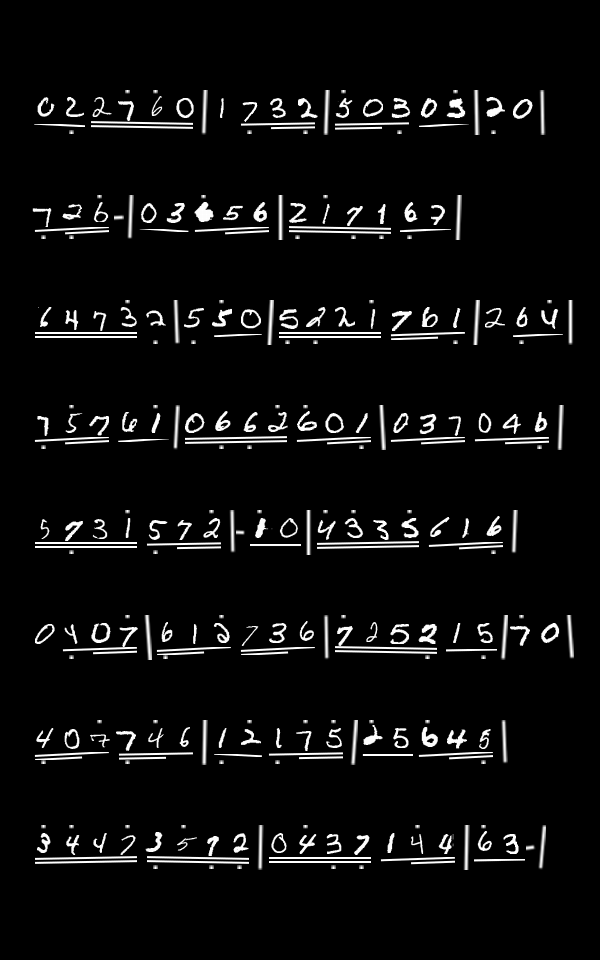 022760|1732|50303|20|
726-|03656|217167|
64732|550|5221761|264|
75761|0662601|037046|
5731572|-10|4335616|
0407|612736|725215|70|
407746|12175|25645|
34473592|0437144|63-|